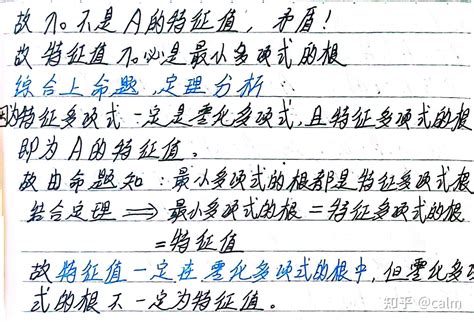 故λ₀不是A的特征值,矛盾!
故特征值λ₀必是最小多项式的根
综合上命题,定理分析
因为特征多项式一定是零化多项式,且特征多项式的根
即为A的特征值。
故由命题知:最小多项式的根都是特征多项式根
结合定理 ⟹ 最小多项式的根=特征多项式的根
=特征值
故特征值一定在零化多项式的根中,但零化多项
式的根不一定为特征值。
知乎 @calm